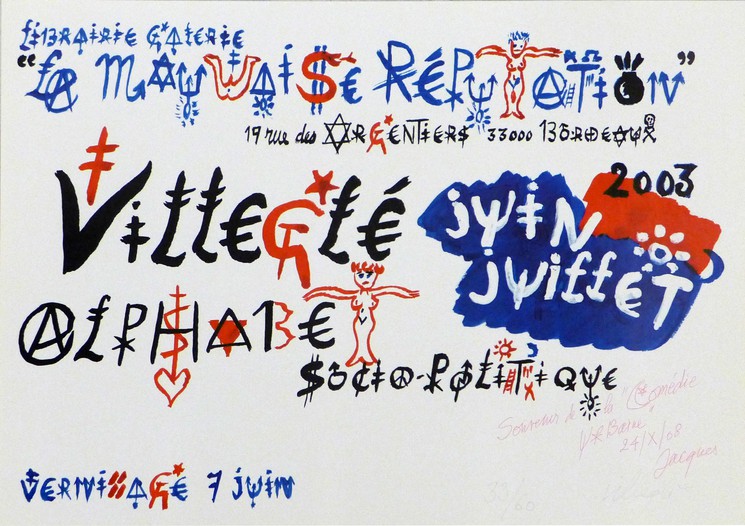 LIBRAIRIE GALERIE
"LA MAUVAISE RÉPUTATION"
19 rue des ARGENTIERS 33000 BORDEAUX
2003
VILLEGLÉ
juiN
juillET
ALPHABET
SOCIO-POLITIQUE
Souvenir de la "Comédie
24/X/08
Jacques
VERNISSAGE 7 juiN